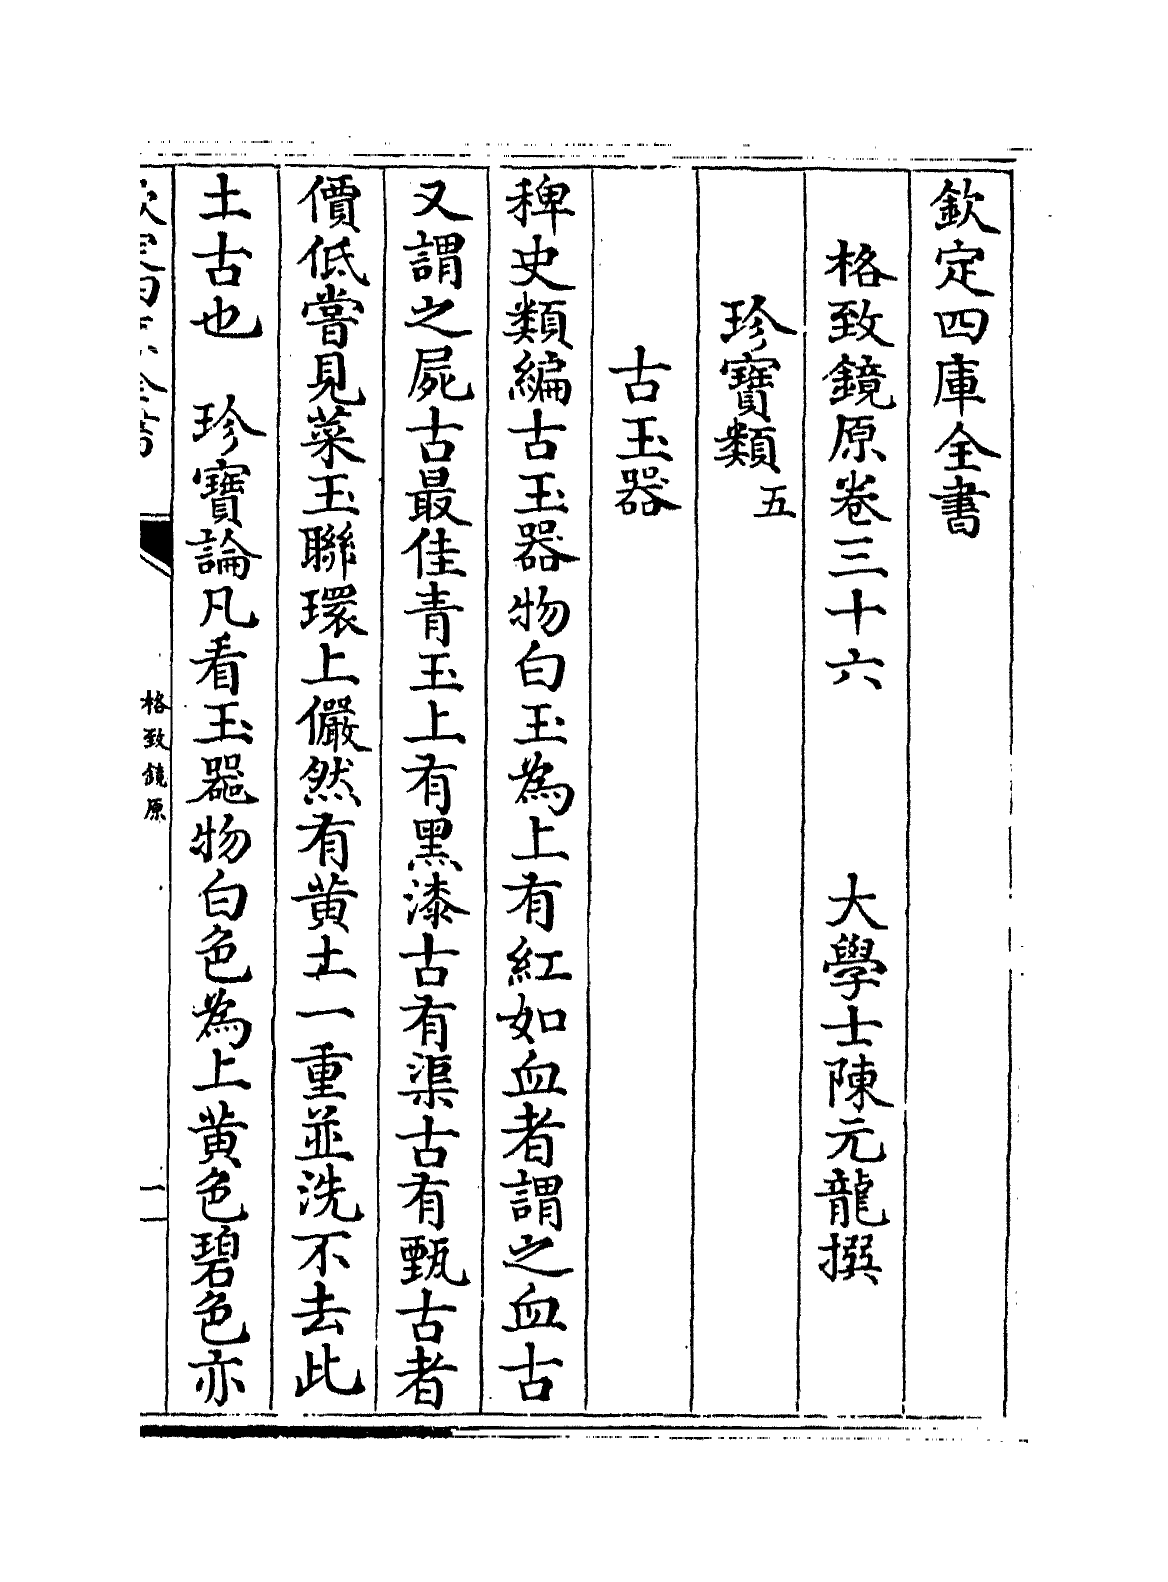 欽定四庫全書
格致鏡原卷三十六　大學士陳元龍撰
珍寶類五
古玉器
稗史類編古玉器物白玉為上有紅如血者謂之血古
又謂之屍古最佳青玉上有黑漆古有渠古有甄古者
價低嘗見菜玉聯環上儼然有黄土一重並洗不去此
土古也　珍寶論凡看玉器物白色為上黄色碧色亦
欽定四庫全書
格致鏡原
一